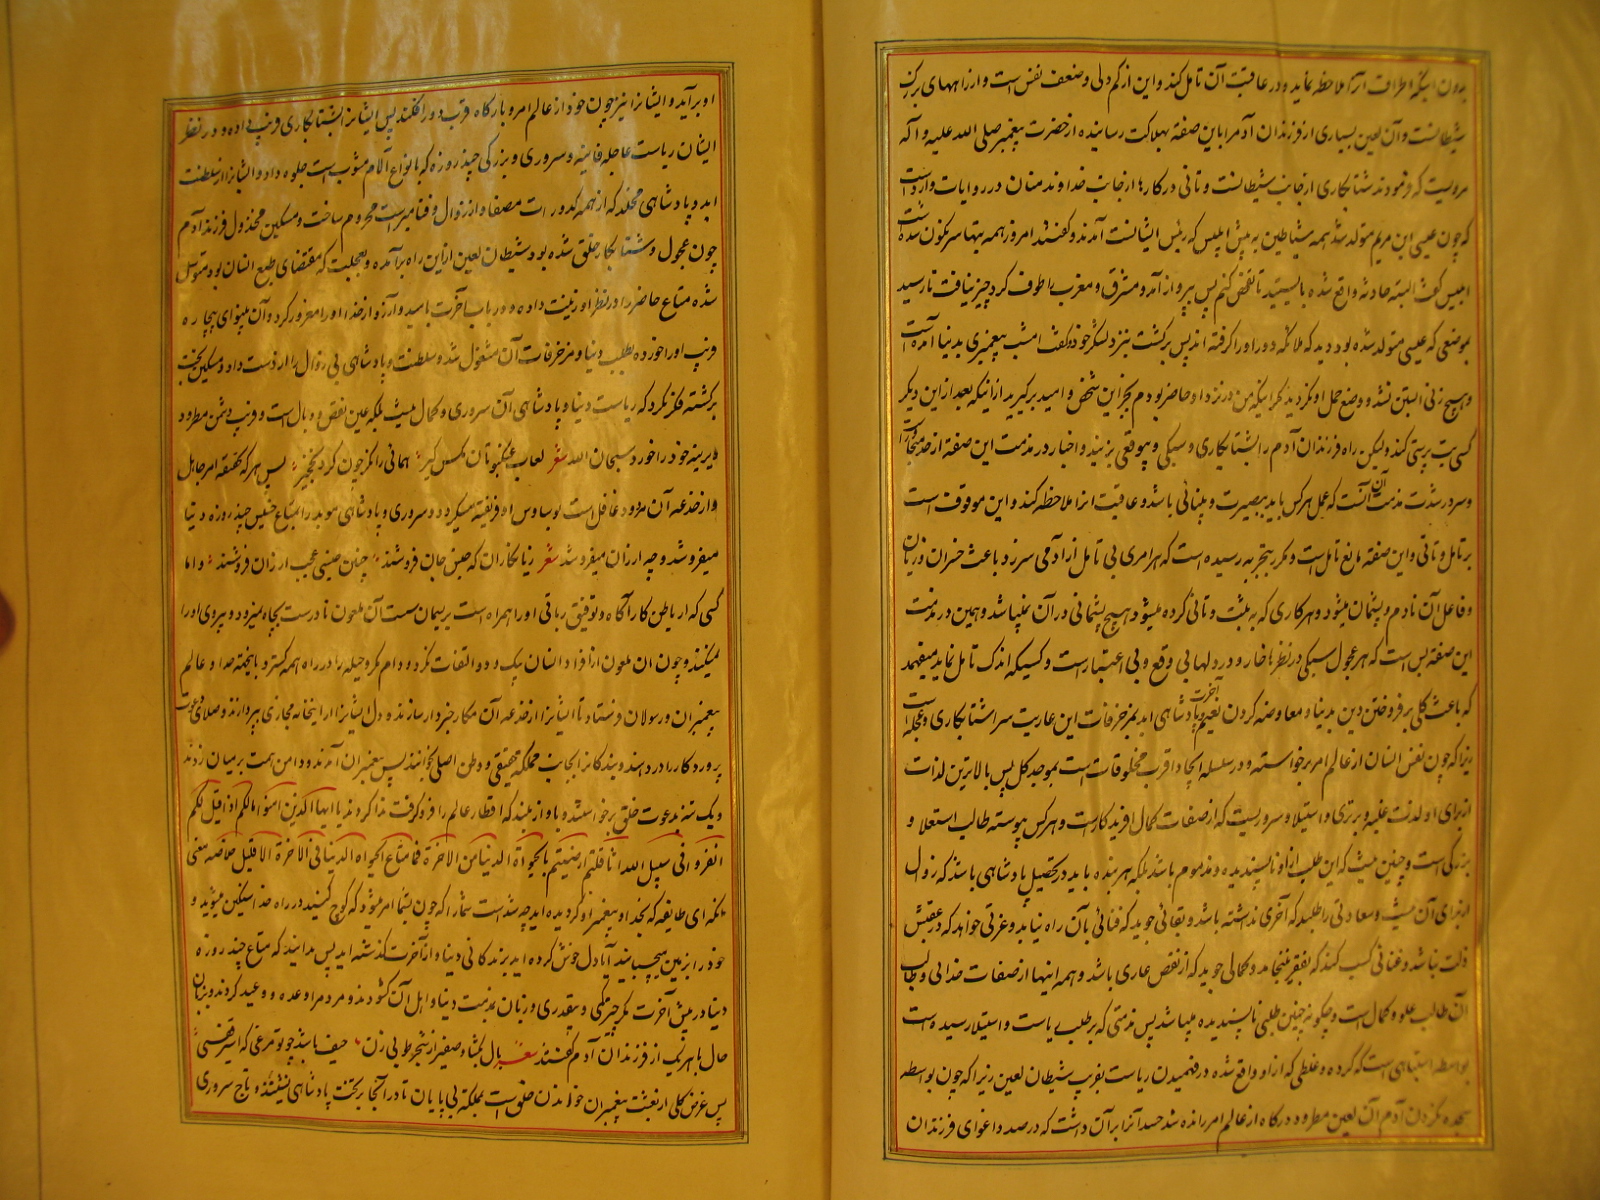 بدون اینکه اطراف آنرا ملاحظه نماید و در عاقبت آن تامل کند و این از کم دلی و ضعف نفس است و از راههای بزرگ
شیطانست و آن لعین بسیاری از فرزندان آدم را باین صفة بهلاکت رسانیده از حضرت پیغمبر صلی الله علیه و آله
مرویست که فرمودند شتابکاری از جانب شیطانست و تانی در کارها از جانب خداوند منان در روایات وارد است
که چون عیسی ابن مریم متولد شد همه شیاطین به پیش ابلیس که رئیس ایشانست آمدند و گفتند امروز همه بتها سرنگون شده است
ابلیس گفت البته حادثه واقع شده بایستید تا تفحص کنم پس بپرواز آمد و مشرق و مغرب را طوف کرد چیزی نیافت تا رسید
بموضعی که عیسی متولد شده بود دید که ملائکه دور او را گرفته اند پس برگشت بنزد لشکر خود و گفت امشب پیغمبری بدنیا آمده است
و هیچ زنی آبستن نشد و وضع حمل او نگردید مگر اینکه من در نزد او حاضر بودم بجز این شخص و امید ببرید از اینکه بعد از این دیگر
کسی بت پرستی کند ولیکن راه فرزندان آدم را بشتابکاری و سبکی و بیوقعی بزنید و اخبار در مذمت این صفة از حد متجاوز است
و سر در شدت مذمت آن آنست که عمل هر کس باید ببصیرت و بینائی باشد و عاقبت انرا ملاحظه کند و این موقوفست
بر تامل و تانی و این صفة مانع تامل است و مکرر بتجربه رسیده است که هر امری بی تامل از آدمی سر زد باعث خسران و زیان
و فاعل آن نادم و پشیمان میشود و هر کاری که به تثبت و تانی کرده میشود هیچ پشیمانی در آن نمیباشد و همین در مذمت
این صفة بس است که هر عجول سبکی در نظرها خار و در دلها بی وقع و بی اعتبار است و کسیکه اندک تامل نماید میفهمد
که باعث کلی بر فروختن دین بدنیا و معاوضه کردن نعیم آخرت و پادشاهی ابد بمزخرفات این عاریت سرا شتابکاری و عجله است
زیرا که چون نفس انسان از عالم امر برخواسته و در سلسله ایجاد اقرب مخلوقات است بموجد کل پس بالاترین لذات
از برای او لذت غلبه و برتری و استیلا و سروریست که از صفات کمال افریدگار است و هر کس پیوسته طالب استعلا و
بزرگی است و چنین نیست که این طلب از او ناپسندیده و مذموم باشد بلکه هر بنده باید در تحصیل پادشاهی باشد که زوال
از برای آن نیست و سعادتی را طلبد که آخری نداشته باشد و بقائی جوید که فنائی بآن راه نیابد و عزتی خواهد که در عقبش
ذلت نباشد و غنائی کسب کند که بفقر نینجامد و کمالی جوید که از نقص عاری باشد و همه اینها از صفات خدائی و طالب
آن طالب علو و کمال است و چگونه چنین طلبی ناپسندیده میباشد پس مذمتی که بر طلب ریاست و استیلا رسیده است
بواسطه اشتباهی است که کرده و غلطی که از او واقع شده در فهمیدن ریاست بفریب شیطان لعین زیرا که چون بواسطه
سجده نکردن آدم آن لعین مطرود درگاه از عالم امر رانده شد حسد آنرا بر آن داشت که در صدد اغوای فرزندان
او برآید و ایشانرا نیز چون خود از عالم امر و بارگاه قرب دور افکند پس ایشانرا بشتابکاری فریب داده و در نظر
ایشان ریاست عاجله فانیه و سروری و بزرگی چند روزه که بانواع آلام مشوب است جلوه داد و ایشانرا از سلطنت
ابد و پادشاهی مخلد که از همه کدورات مصفا و از زوال و فنا مبراست محروم ساخت و مسکین مخذول فرزند آدم
چون عجول و شتابکار خلق شده بود شیطان لعین از این راه برآمده و بعجلت که مقتضای طبع انسان بود متوسل
شده متاع حاضر را در نظر او زینت داده و در باب آخرت باميد و آرزو از خدا او را مغرور کرد و آن بینوای بیچاره
فریب او را خورده بطلب دنیا و مزخرفات آن مشغول شد و سلطنت و پادشاهی بی زوال را از دست داد و مسکین بخت
برگشته فکر نکرد که ریاست دنیا و پادشاهی آن سروری و کمال نیست بلکه عین نقص و وبال است و فریب دشمن مطرود
دیرینه خود را خورد سبحان الله شعر لعاب عنکبوتان مگس گیر همائی را نگر چون کرد نخجیر پس هر که بحقیقه امر جاهل
و از خدعه آن مردود غافل است بوساوس او فریفته میگردد و سروری و پادشاهی موبد را بمتاع خسیس چند روزه دنیا
میفروشد و چه ارزان میفروشد شعر زیانکاران که جنس جان فروشند چنین جنسی عجب ارزان فروشند و اما
کسی که از باطن کار آگاه و توفیق ربانی او را همراه است بریسمان سست آن ملعون نادرست بچاه نمیرود و پیروی او را
نمیکند و چون ان ملعون از افراد انسان بیک و دو التفات نکرد و دام مکر و حیله را در راه همه گسترد بانیجهته خدا و عالم
پیغمبران و رسولان فرستاد تا ایشانرا از خدعه آن مکار خبردار سازند و دل ایشانرا از اینخانه مجازی بپردازند و صلای دعوت
پروردگار را در دهند و بندگانرا بجانب مملکة حقیقی و وطن اصلی بخوانند پس پیغمبران آمدند و دامن همت بر میان زدند
و یک تنه بدعوت خلق برخواستند و باواز بلند که اقطار عالم را فرو گرفت ندا کردند یا ایها الذین امنوا مالکم اذا قیل لکم
انفروا فی سبیل الله اثاقلتم ارضیتم بالحیوة الدنیا من الاخرة فما متاع الحیوة الدنیا فی الاخرة الا قلیل خلاصه معنی
انکه ای طایفه که بخدا و پیغمبر او گرویده اید چه شده است شما را که چون بشما امر میشود که کوچ کنید در راه خدا سنگین میشوید و
خود را بزمین میچسبانید آیا دل خوش کرده اید بزندگانی دنیا و از آخرت گذشته اید پس بدانید که متاع چند روزه
دنیا در پیش آخرت مگر چیز کمی و بیقدری و زبان بمذمت دنیا و اهل آن گشودند و مردم را وعده و وعید کردند و بزبان
حال با هر یک از فرزندان آدم گفتند شعر بال بگشا و صفیر از شجر طوبی زن حیف باشد چو تو مرغی که اسیر قفسی
پس غرض کلی از بعثت پیغمبران خواندن خلق است بمملکة بی پایان تا در آنجا بر تخت پادشاهی نشینند و تاج سروری